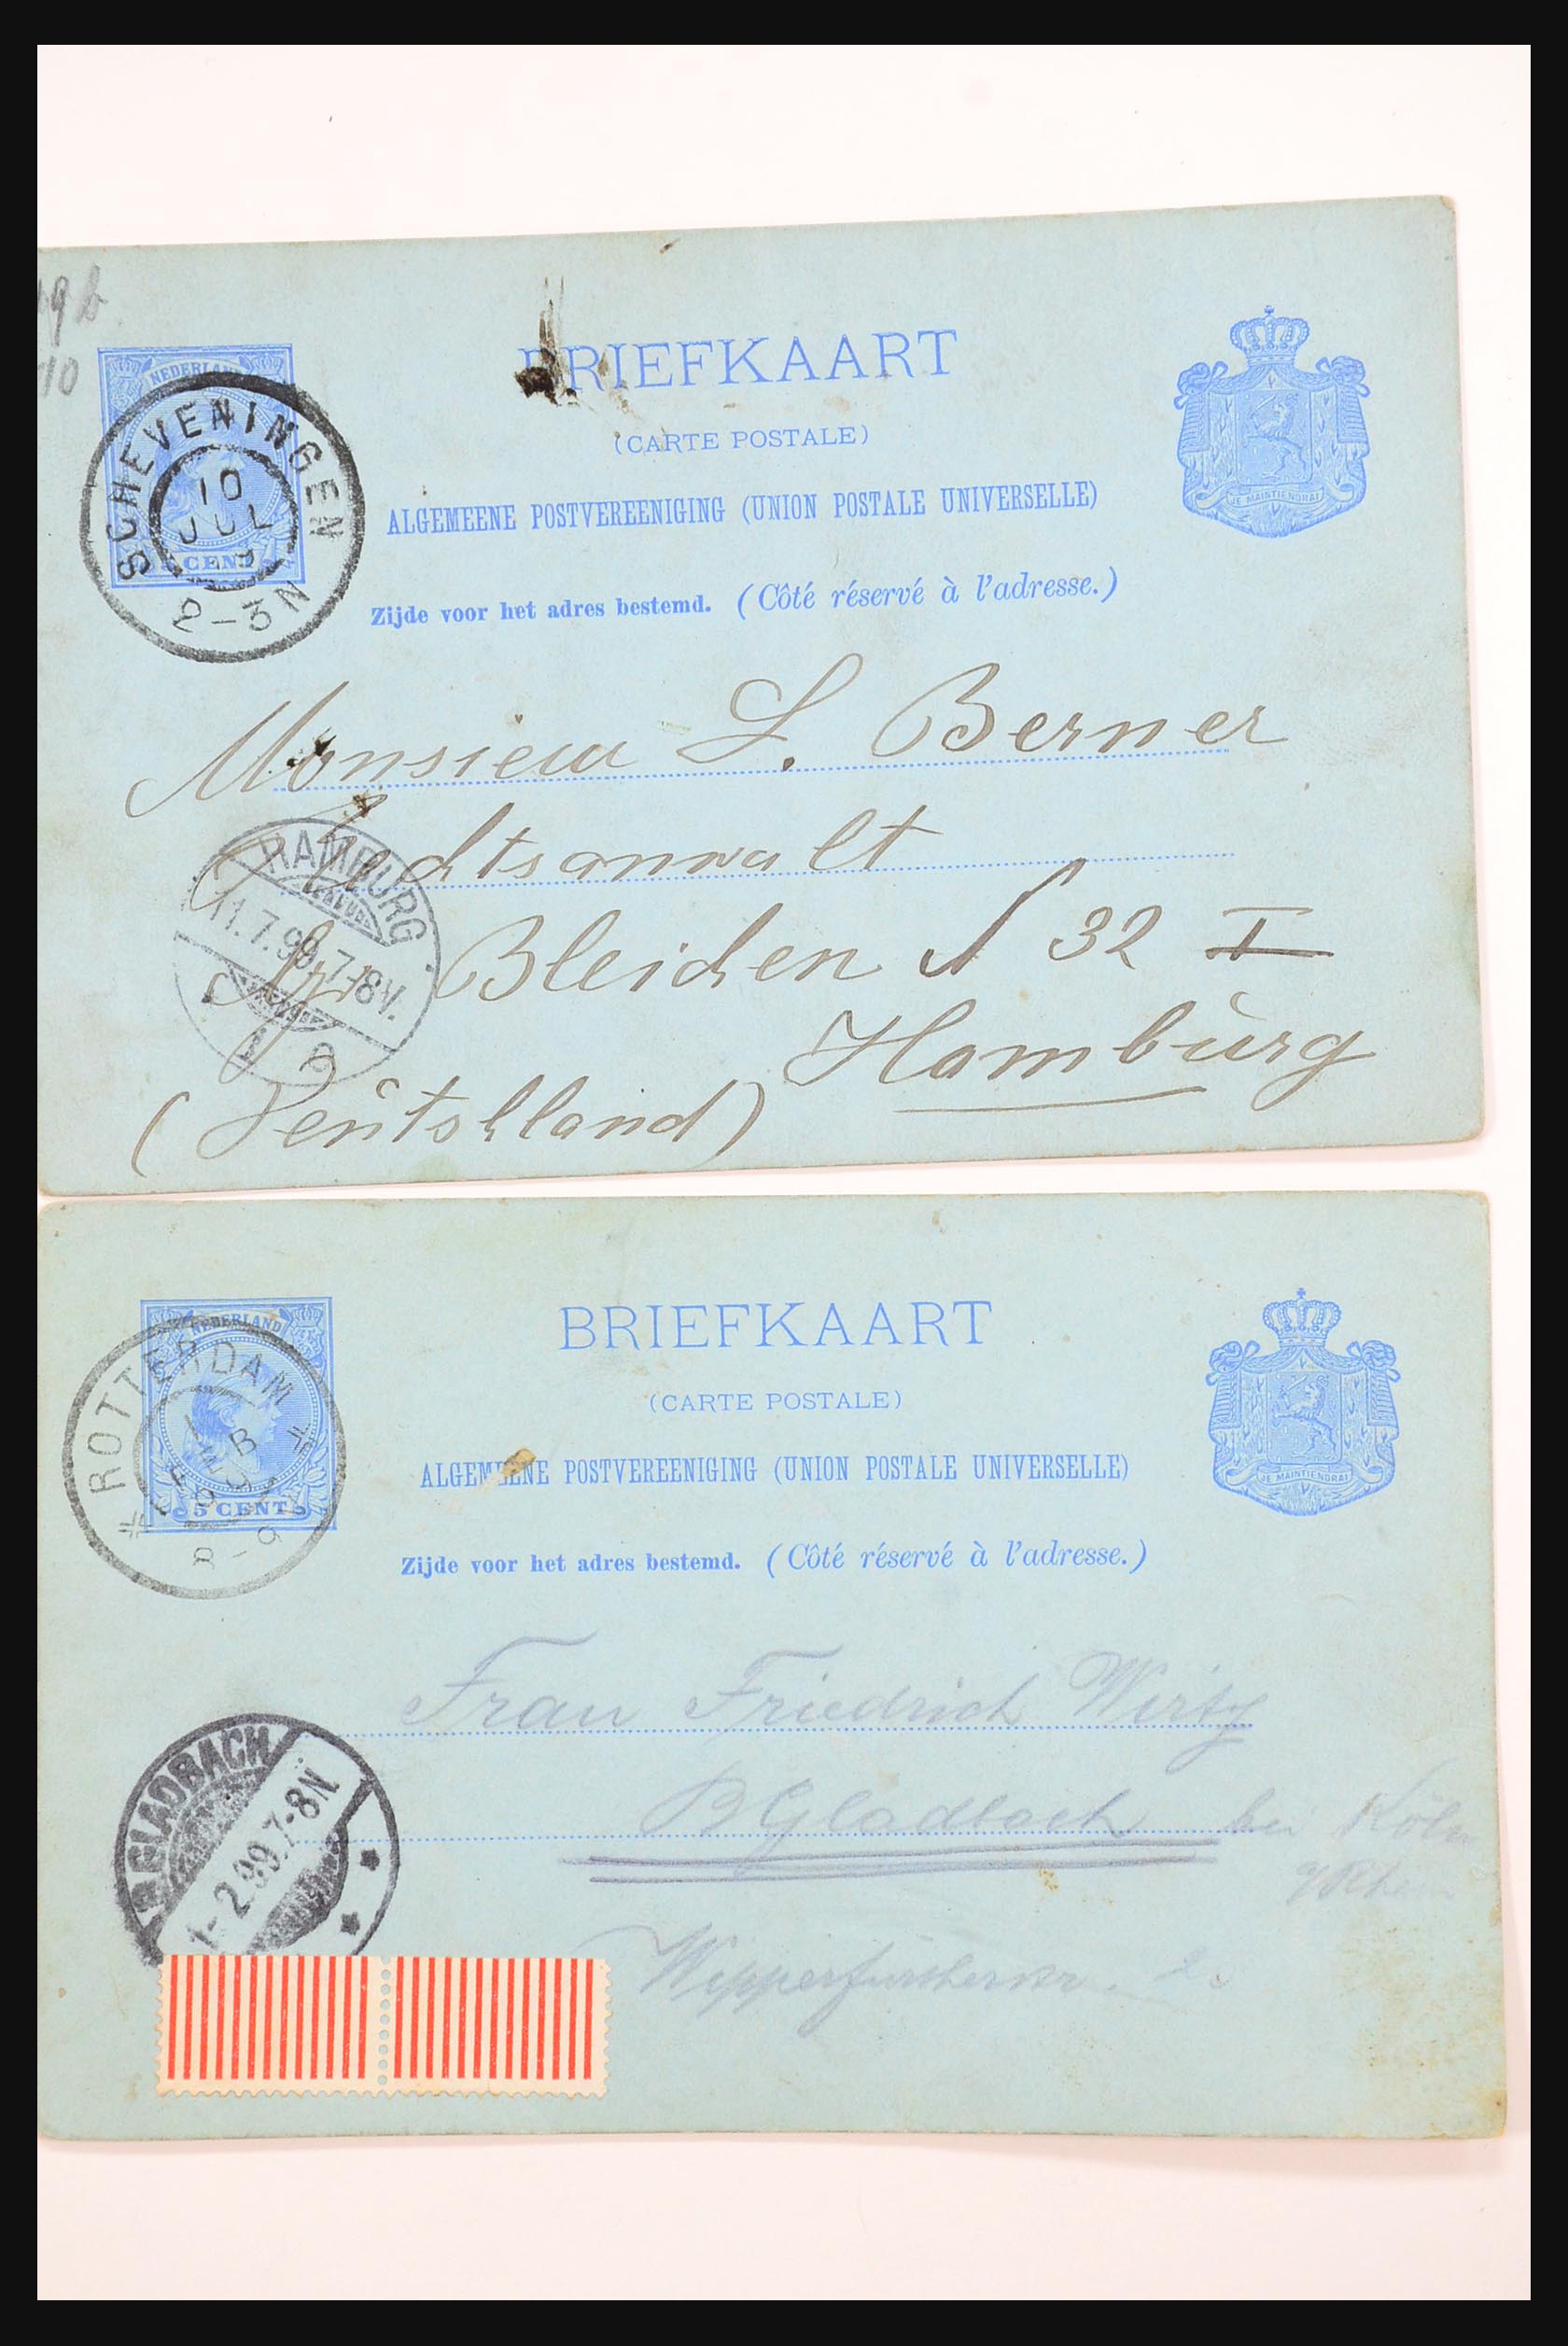 BRIEFKAART
(CARTE POSTALE)
ALGEMEENE POSTVEREENIGING (UNION POSTALE UNIVERSELLE)
Zijde voor het adres bestemd. (Côté réservé à l'adresse.)
NEDERLAND
5 CENT
SCHEVENINGEN
10
JUL
9
2-3N
JE MAINTIENDRAI
Monsieur L. Berner
Rechtsanwalt
Bleichen № 32 I
Hamburg
(Deutschland)
HAMBURG
11.7.98.7-8V.
1
BRIEFKAART
(CARTE POSTALE)
ALGEMEENE POSTVEREENIGING (UNION POSTALE UNIVERSELLE)
Zijde voor het adres bestemd. (Côté réservé à l'adresse.)
NEDERLAND
5 CENT
ROTTERDAM
1
FEB
JE MAINTIENDRAI
Frau Friedrich Wirtz
B Gladbach bei Köln
a/Rhein
Wipperfürtherstr. 2.
GLADBACH
1-2.99.7-8N.